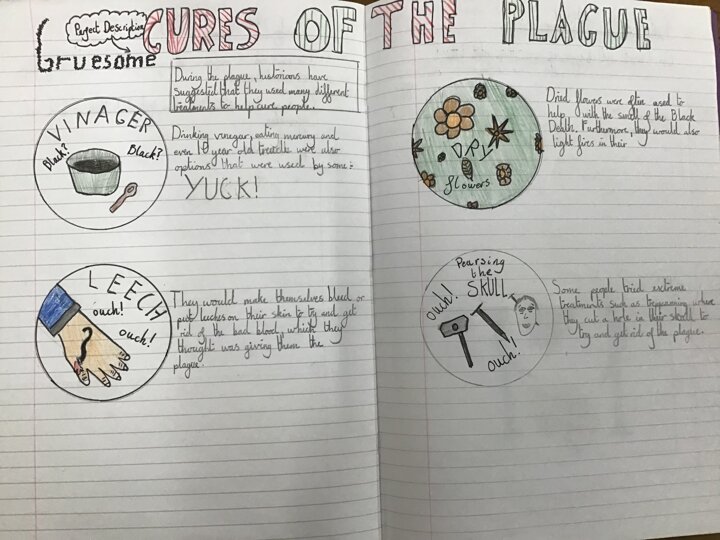 Perfect Description
Gruesome
CURES OF THE PLAGUE
During the plague, historians have
suggested that they used many different
treatments to help cure people.
VINAGER
Black?
Black?
Drinking vinegar, eating mercury and
even 10 year old treacle were also
options that were used by some:
YUCK!
LEECH
ouch!
ouch!
They would make themselves bleed or
put leeches on their skin to try and get
rid of the bad blood, which they
thought was giving them the
plague.
DRY
flowers
Dried flowers were often used to
help with the smell of the Black
Death. Furthermore, they would also
light fires in their
Pearsing
the
SKULL
ouch!
ouch!
Some people tried extreme
treatments such as where
they cut a hole in their skull to
try and get rid of the plague.